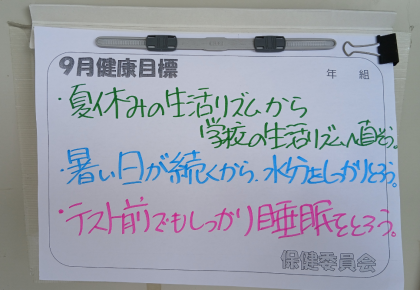 9月健康目標
年 組
・夏休みの生活リズムから
学校の生活リズムへ直そう。
・暑い日が続くから、水分をしっかりとろう。
・テスト前でもしっかり睡眠をとろう。
保健委員会